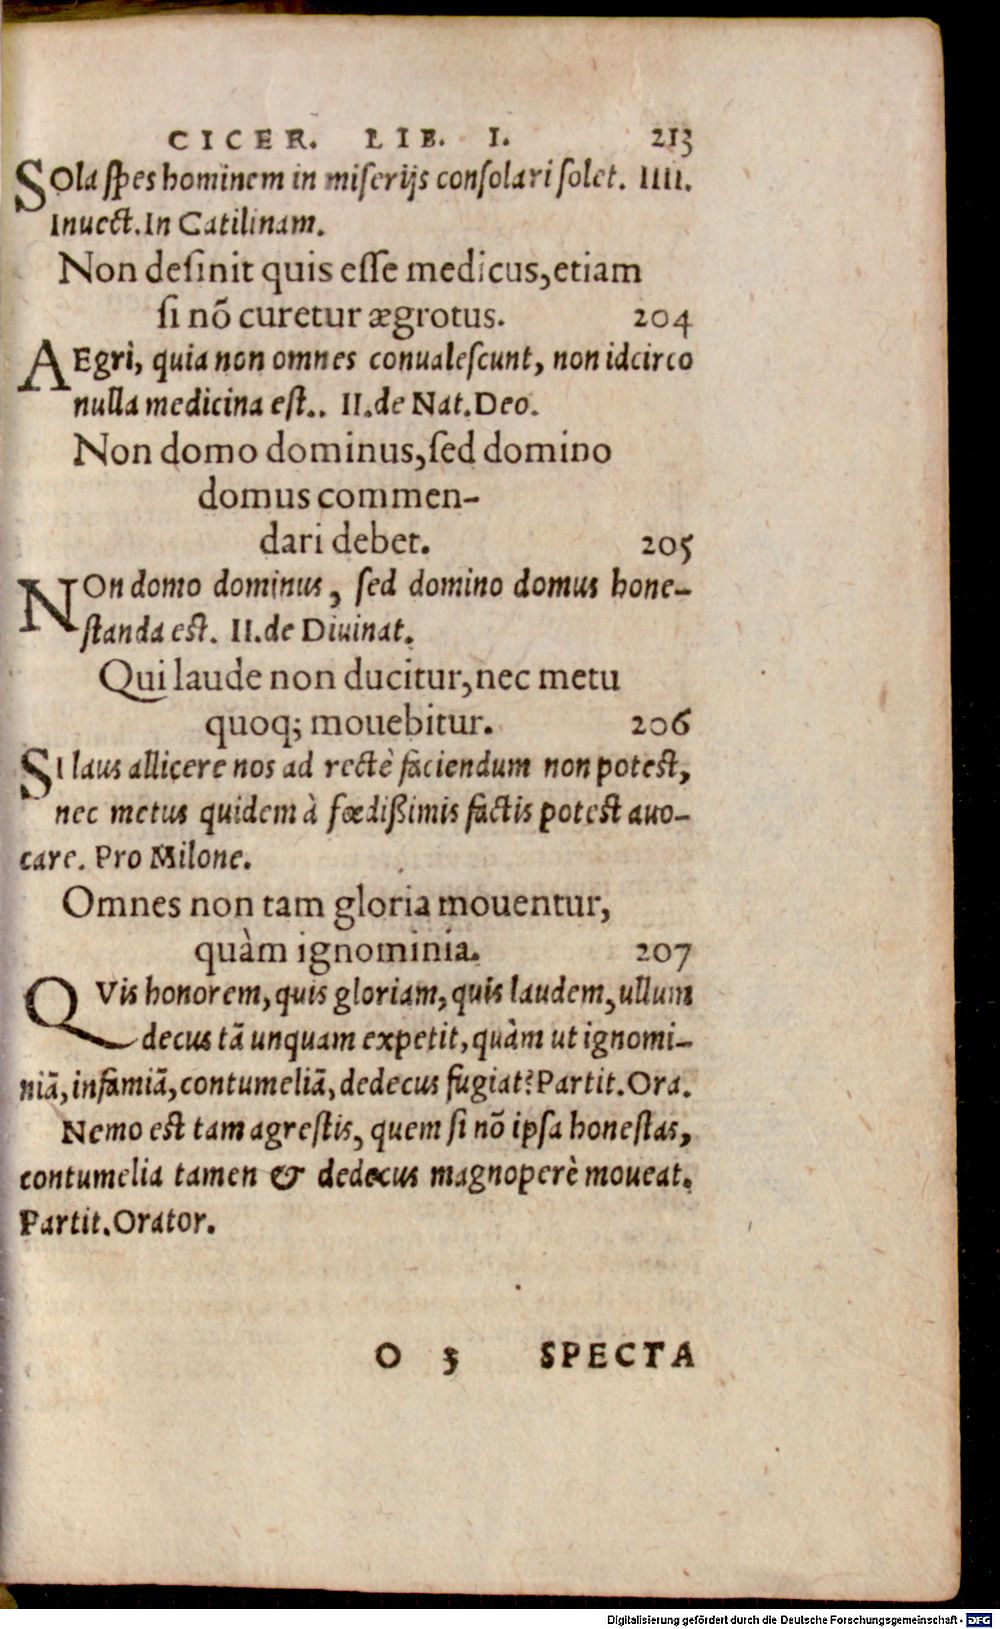 CICER. LIB. I. 213
SOla ſpes hominem in miſerijs conſolari ſolet. IIII.
Inuect. In Catilinam.
Non deſinit quis eſſe medicus, etiam
ſi nõ curetur ægrotus. 204
AEgri, quia non omnes conualeſcunt, non idcirco
nulla medicina eſt.. II. de Nat. Deo.
Non domo dominus, ſed domino
domus commen-
dari debet. 205
NOn domo dominus, ſed domino domus hone-
ſtanda eſt. II. de Diuinat.
Qui laude non ducitur, nec metu
quoq; mouebitur. 206
SI laus allicere nos ad rectè faciendum non poteſt,
nec metus quidem à fœdißimis factis poteſt auo-
care. Pro Milone.
Omnes non tam gloria mouentur,
quàm ignominia. 207
QVis honorem, quis gloriam, quis laudem, ullum
decus tã unquam expetit, quàm ut ignomi-
niã, infamiã, contumeliã, dedecus fugiat? Partit. Ora.
Nemo eſt tam agreſtis, quem ſi nõ ipſa honeſtas,
contumelia tamen & dedecus magnoperè moueat.
Partit. Orator.
O 3 SPECTA
Digitalisierung gefördert durch die Deutsche Forschungsgemeinschaft - DFG